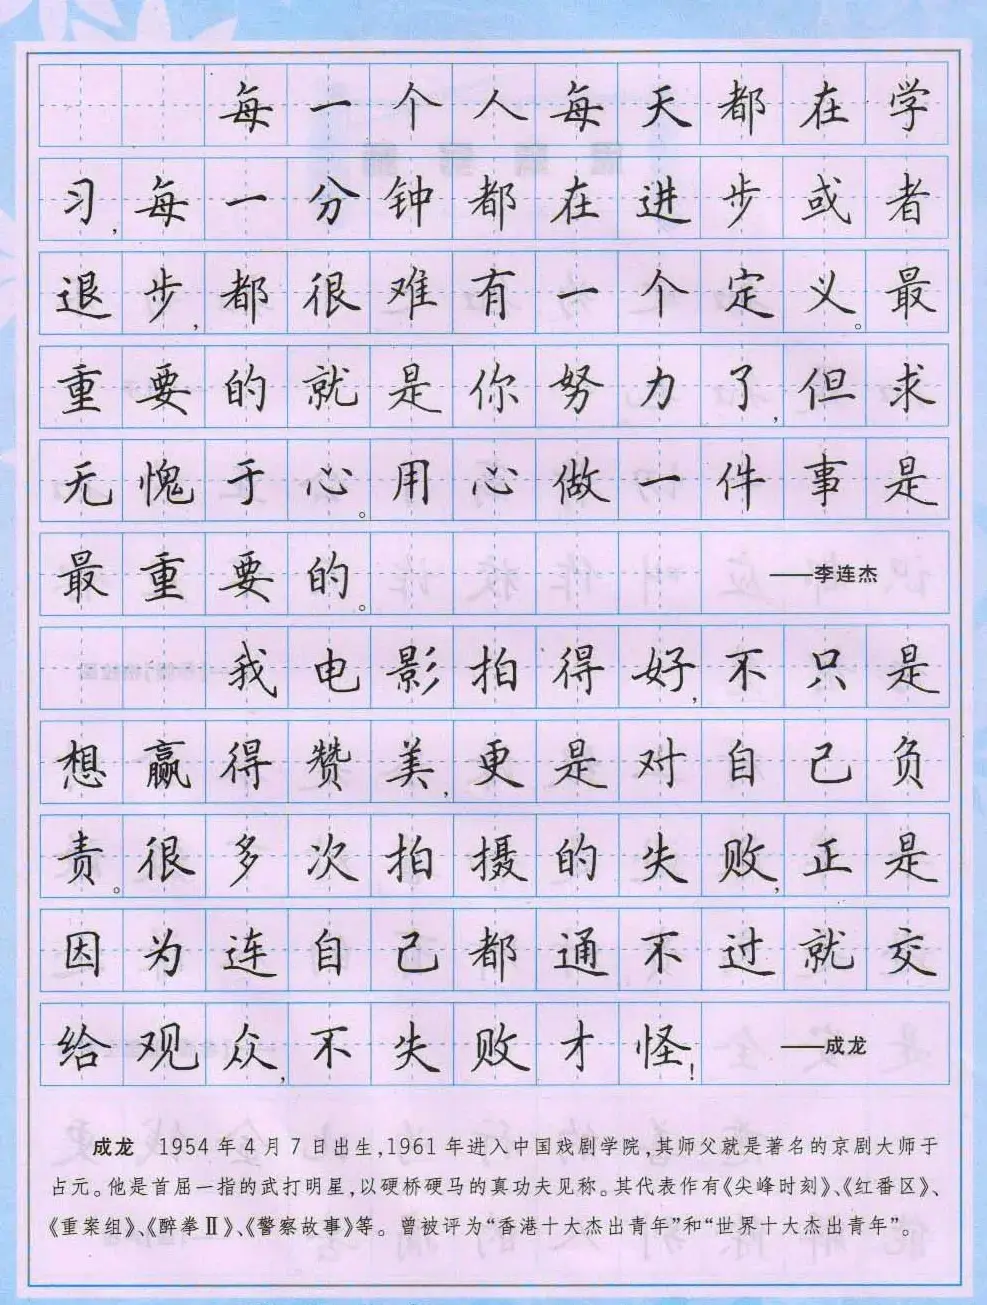 每一个人每天都在学
习,每一分钟都在进步或者
退步,都很难有一个定义。最
重要的就是你努力了,但求
无愧于心。用心做一件事是
最重要的。 ——李连杰
我电影拍得好,不只是
想赢得赞美,更是对自己负
责。很多次拍摄的失败,正是
因为连自己都通不过就交
给观众,不失败才怪! ——成龙
成龙 1954年4月7日出生,1961年进入中国戏剧学院,其师父就是著名的京剧大师于
占元。他是首屈一指的武打明星,以硬桥硬马的真功夫见称。其代表作有《尖峰时刻》、《红番区》、
《重案组》、《醉拳Ⅱ》、《警察故事》等。曾被评为“香港十大杰出青年”和“世界十大杰出青年”。